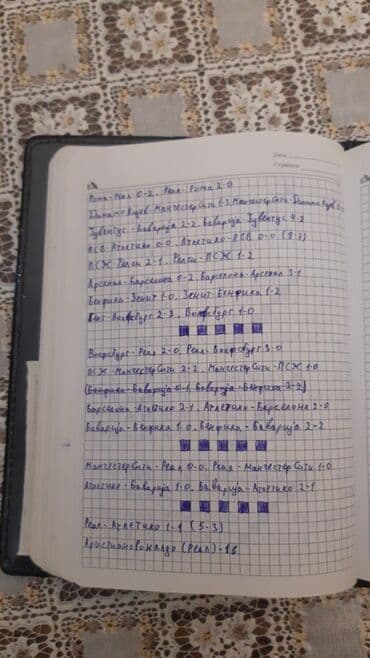 Дата
Страница
Рома-Реал 0-2, Реал-Рома 2-0
Динамо Киев-Манчестер Сити 1-3, Манчестер Сити-Динамо Киев
Јувентус-Баварија 2-2, Баварија-Јувентус 4-2
ПСВ-Атлетико 0-0, Атлетико-ПСВ 0-0 (8-7)
ПСЖ Челси 2-1, Челси-ПСЖ 1-2
Арсенал-Барселона 0-2, Барселона-Арсенал 3-1
Бенфика-Зенит 1-0, Зенит-Бенфика 1-2
Гент-Волфсбург 2-3, Волфсбург 1-0
Волфсбург-Реал 2-0, Реал-Волфсбург 3-0
ПСЖ-Манчестер Сити 2-2, Манчестер Сити-ПСЖ 1-0
(Бенфика-Баварија 0-1, Баварија-Бенфика 2-2)
Барселона-Атлетико 2-1, Атлетико-Барселона 2-0
Баварија-Бенфика 1-0, Бенфика-Баварија 2-2
Манчестер Сити-Реал 0-0, Реал-Манчестер Сити 1-0
Атлетико-Баварија 1-0, Баварија-Атлетико 2-1
Реал-Атлетико 1-1 (5-3)
Кристиано Роналдо (Реал)-16